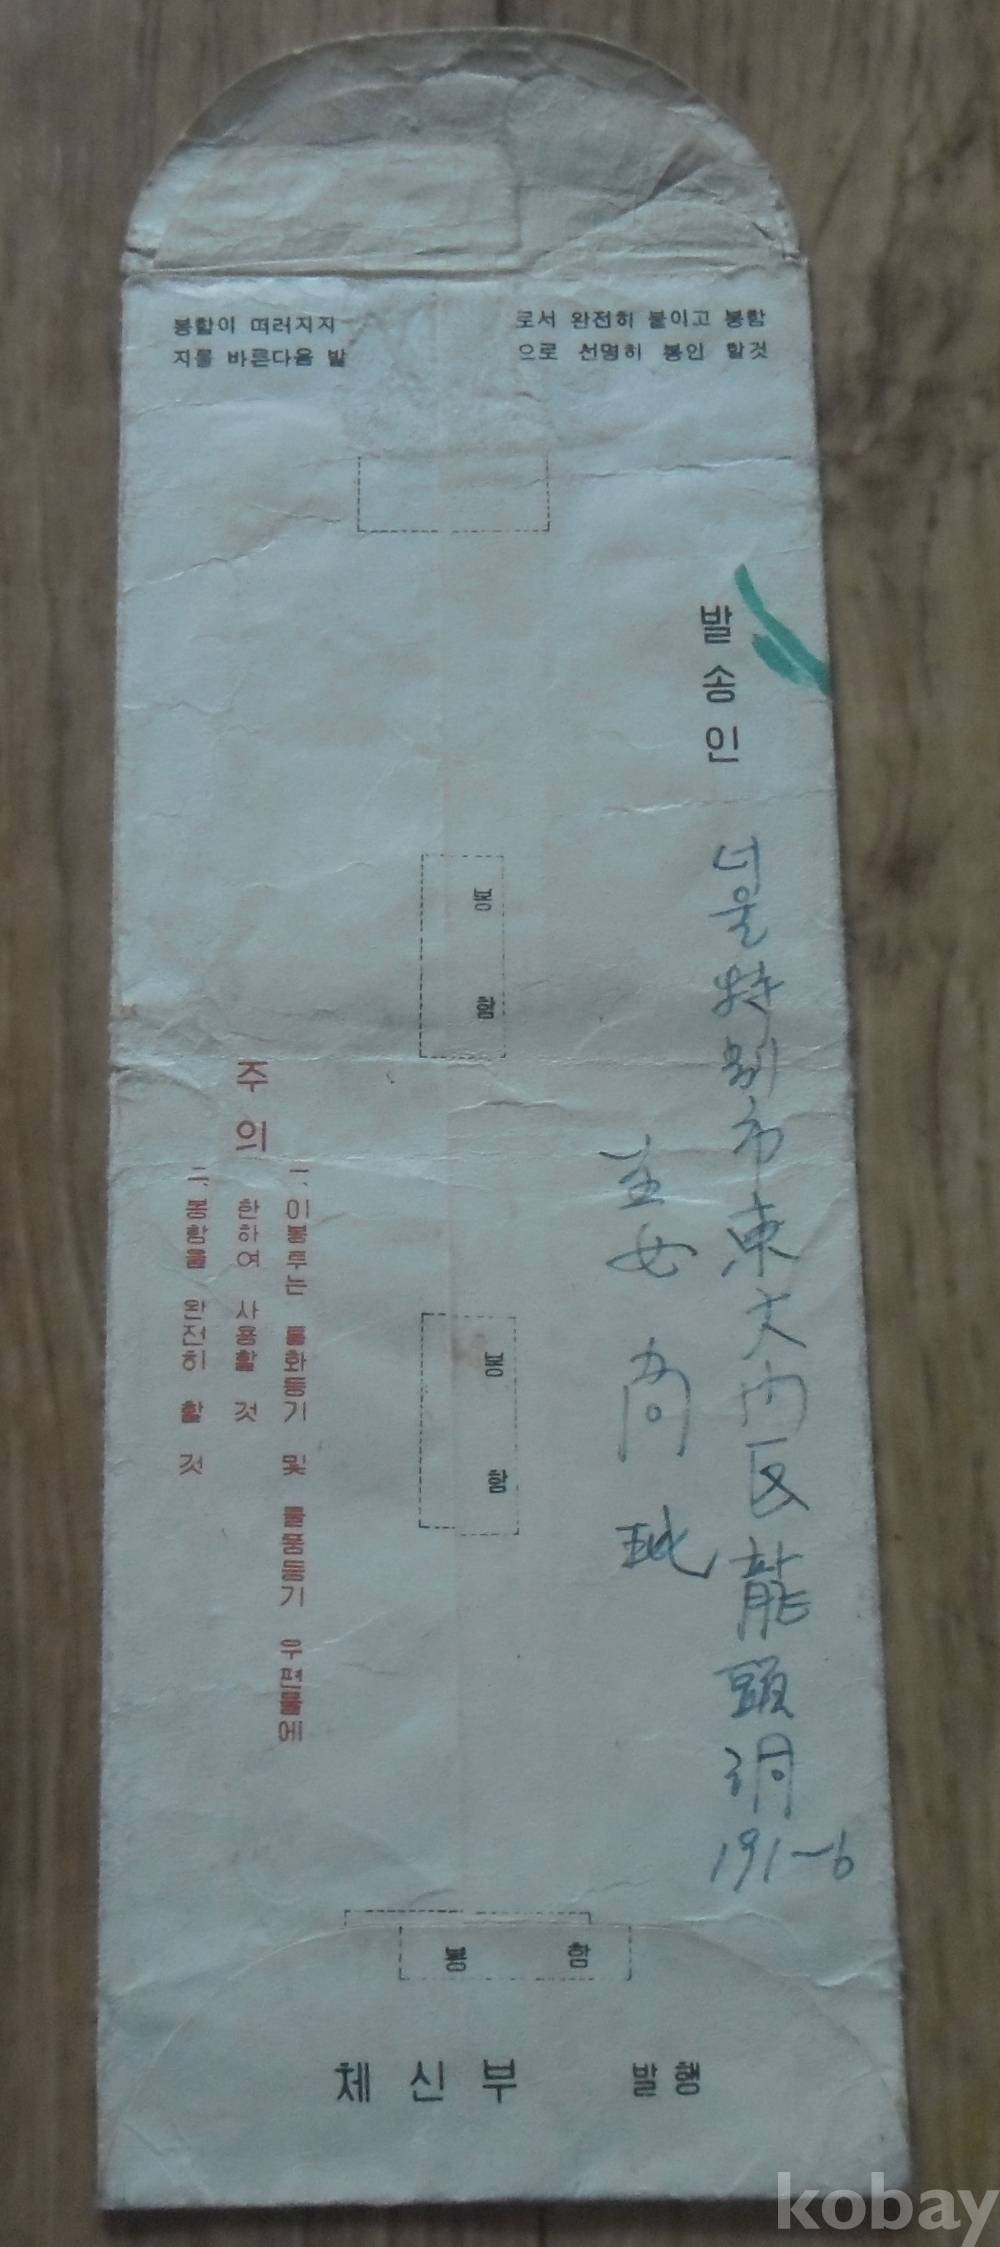 봉함이 떠러지지 로서 완전히 붙이고 봉함
지를 바른다음 밭 으로 선명히 봉인 할것
발송인
서울特別市東大門区龍頭洞
191-6
봉함
봉함
주의
一. 이봉투는 통화등기 및 물품등기 우편물에
한하여 사용할 것
二. 봉함을 완전히 할 것
봉 함
체신부 발행
kobay